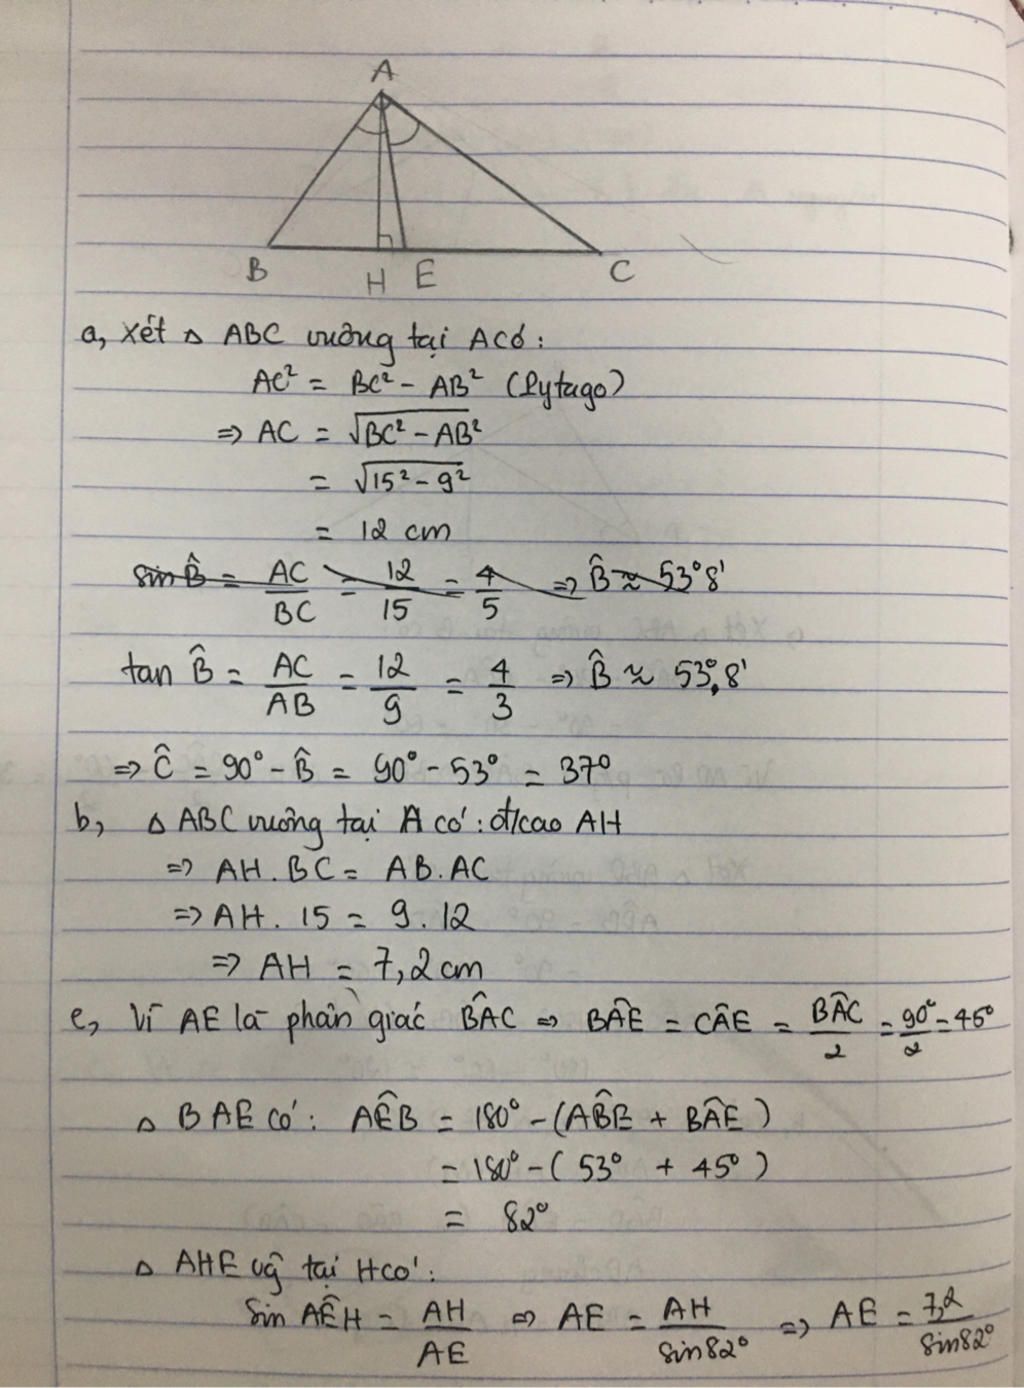 A
B H E C
a, Xét △ ABC vuông tại A có:
AC² = BC² - AB² (Pytago)
⇒ AC = √BC² - AB²
= √15² - 9²
= 12 cm
sin B̂ = AC/BC = 12/15 = 4/5 ⇒ B̂ ≈ 53°8'
tan B̂ = AC/AB = 12/9 = 4/3 ⇒ B̂ ≈ 53°,8'
⇒ Ĉ = 90° - B̂ = 90° - 53° = 37°
b, △ ABC vuông tại A có: đ/cao AH
⇒ AH . BC = AB . AC
⇒ AH . 15 = 9 . 12
⇒ AH = 7,2 cm
c, Vì AE là phân giác BÂC ⇒ BÂE = CÂE = BÂC/2 = 90°/2 = 45°
△ BAE có: AÊB = 180° - (AB̂E + BÂE)
= 180° - (53° + 45°)
= 82°
△ AHE vg tại H có:
Sin AÊH = AH/AE ⇒ AE = AH/sin82° ⇒ AE = 7,2/sin82°